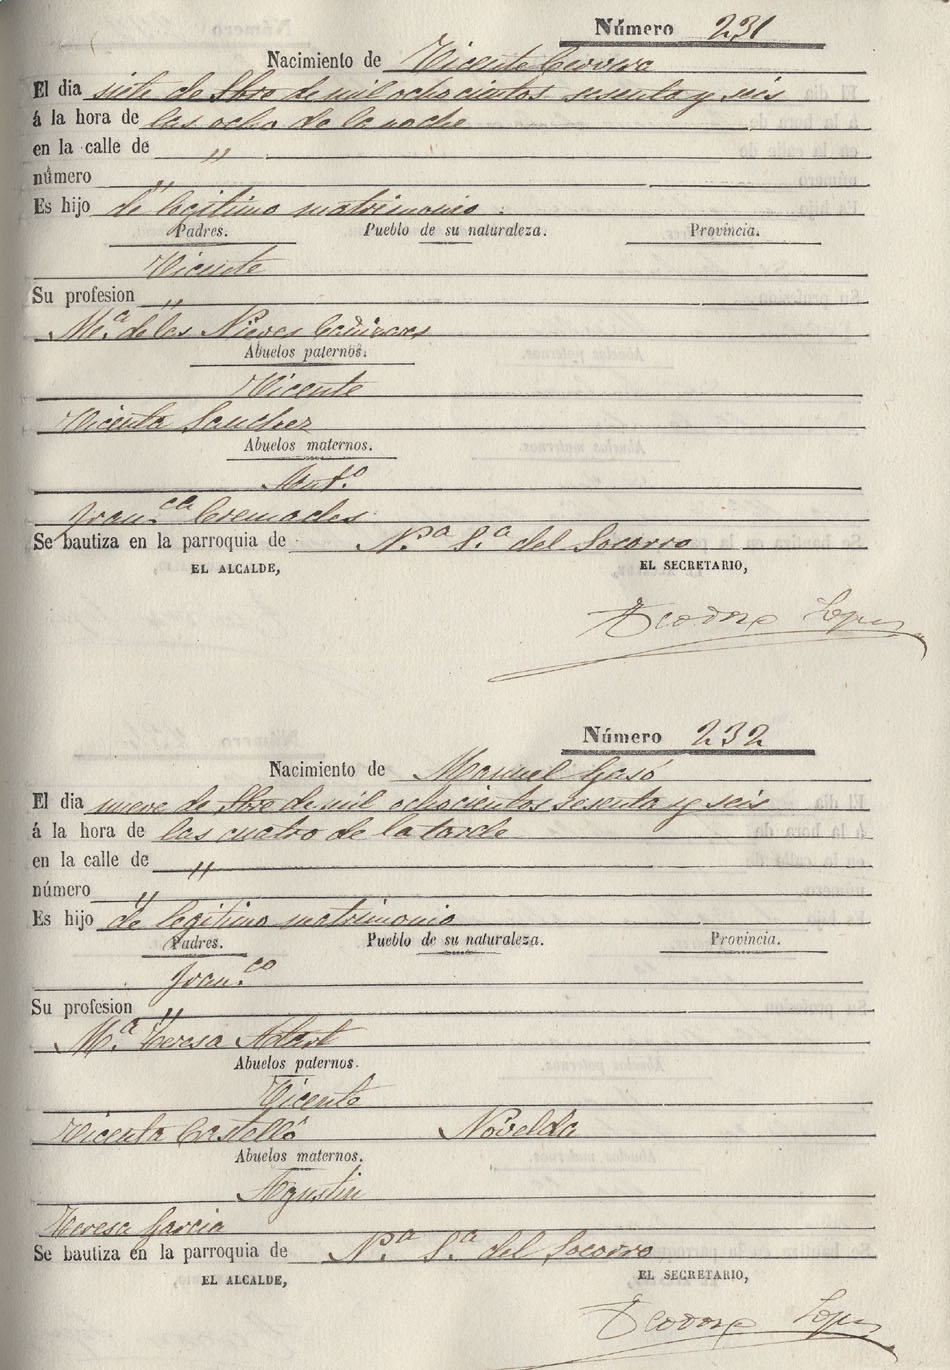 Número 231
Nacimiento de Vicente Cervera
El dia siete de 8bre de mil ochocientos sesenta y seis
á la hora de las ocho de la noche
en la calle de "
número "
Es hijo de legitimo matrimonio.
Padres. Pueblo de su naturaleza. Provincia.
Vicente
Su profesion "
M.ª de las Nieves
Abuelos paternos.
Vicente
Vicenta Sanchez
Abuelos maternos.
Ant.º
Fran.ca Cremades
Se bautiza en la parroquia de N.ª S.ª del Socorro
EL ALCALDE, EL SECRETARIO,
Teodoro Lopez
Número 232
Nacimiento de Manuel Gasó
El dia nueve de 8bre de mil ochocientos sesenta y seis
á la hora de las cuatro de la tarde
en la calle de "
número "
Es hijo de legitimo matrimonio
Padres. Pueblo de su naturaleza. Provincia.
Fran.co
Su profesion "
M.ª Teresa
Abuelos paternos.
Vicente
Vicenta Castelló Novelda
Abuelos maternos.
Agustin
Teresa Garcia
Se bautiza en la parroquia de N.ª S.ª del Socorro
EL ALCALDE, EL SECRETARIO,
Teodoro Lopez